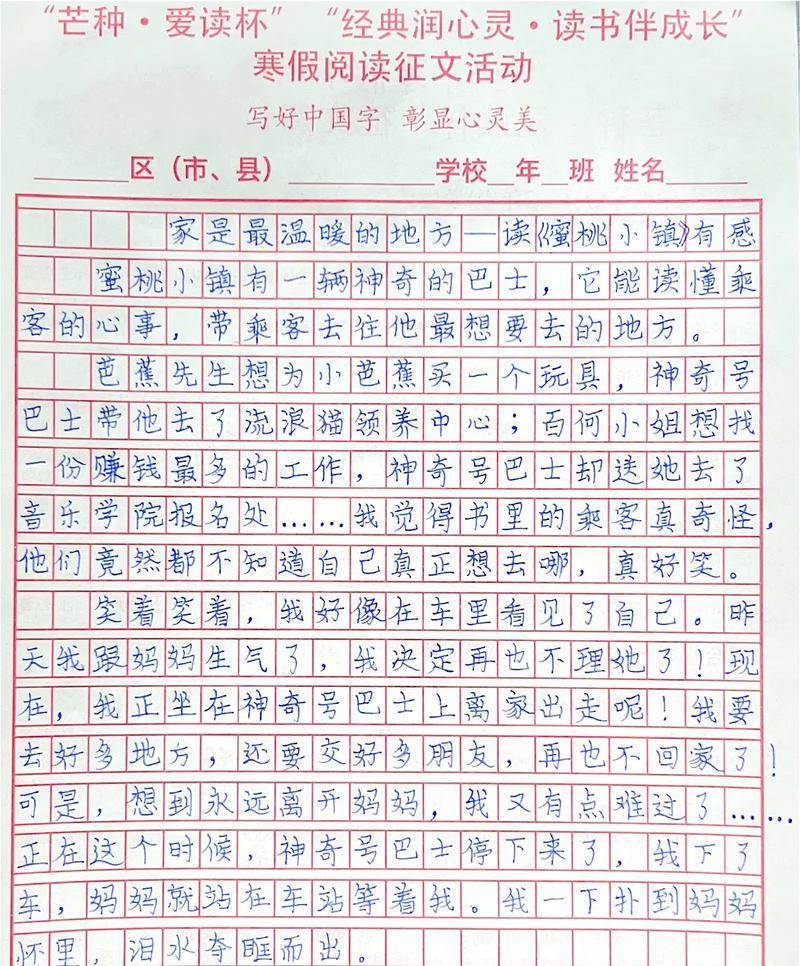 “芒种·爱读杯” “经典润心灵·读书伴成长”
寒假阅读征文活动
写好中国字 彰显心灵美
______区（市、县）________学校__年__班 姓名______
家是最温暖的地方—读《蜜桃小镇》有感
蜜桃小镇有一辆神奇的巴士，它能读懂乘
客的心事，带乘客去往他最想要去的地方。
芭蕉先生想为小芭蕉买一个玩具，神奇号
巴士带他去了流浪猫领养中心；百何小姐想找
一份赚钱最多的工作，神奇号巴士却送她去了
音乐学院报名处……我觉得书里的乘客真奇怪，
他们竟然都不知道自己真正想去哪，真好笑。
笑着笑着，我好像在车里看见了自己。昨
天我跟妈妈生气了，我决定再也不理她了！现
在，我正坐在神奇号巴士上离家出走呢！我要
去好多地方，还要交好多朋友，再也不回家了！
可是，想到永远离开妈妈，我又有点难过了……
正在这个时候，神奇号巴士停下来了，我下了
车，妈妈就站在车站等着我。我一下扑到妈妈
怀里，泪水夺眶而出。